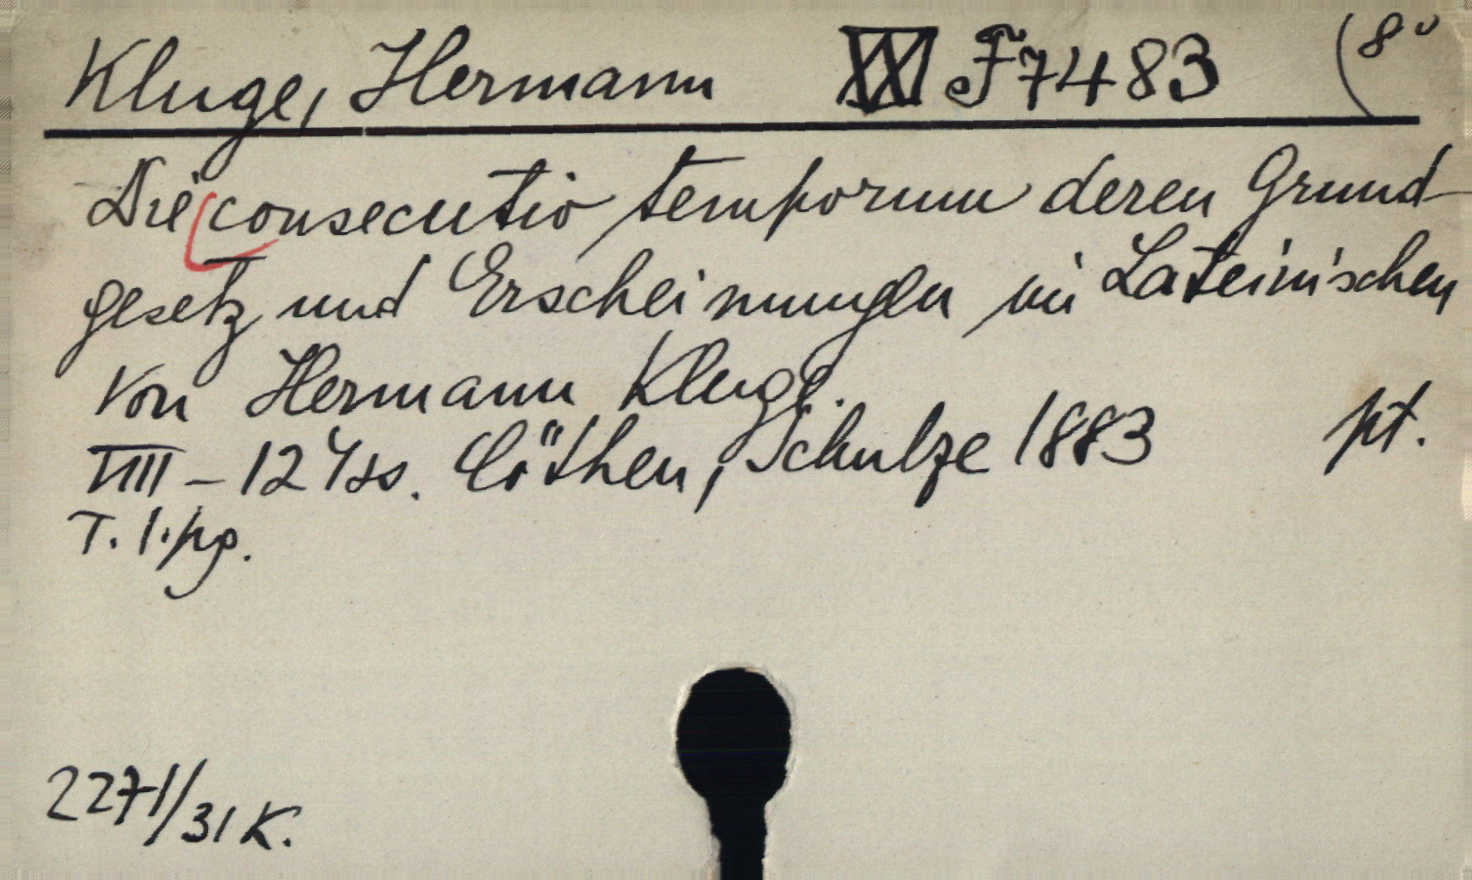 Kluge, Hermann XXI F7483 (8°
Die consecutio temporum deren Grund-
gesetz und Erscheinungen im Lateinischen
Von Hermann Kluge.
VIII – 124ss. Cöthen, Schulze 1883 pt.
T. 1. pg.
2271/31 K.